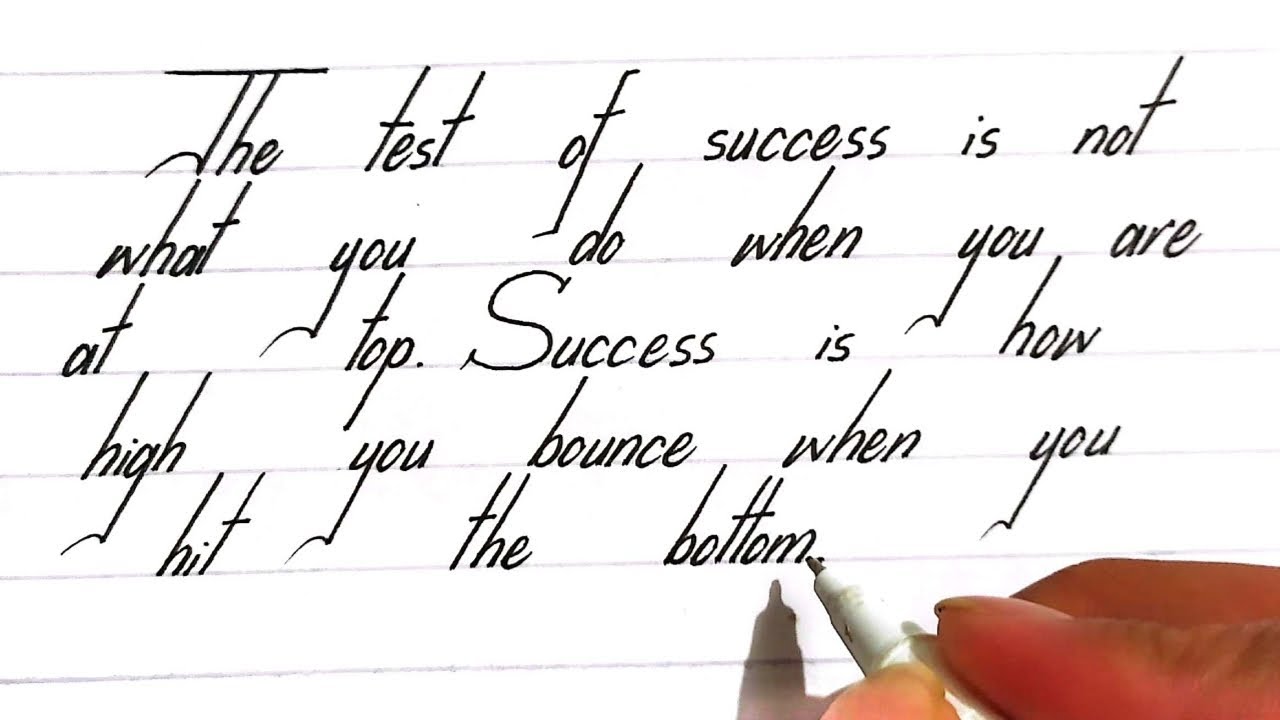 The test of success is not
what you do when you are
at top. Success is how
high you bounce when you
hit the bottom.